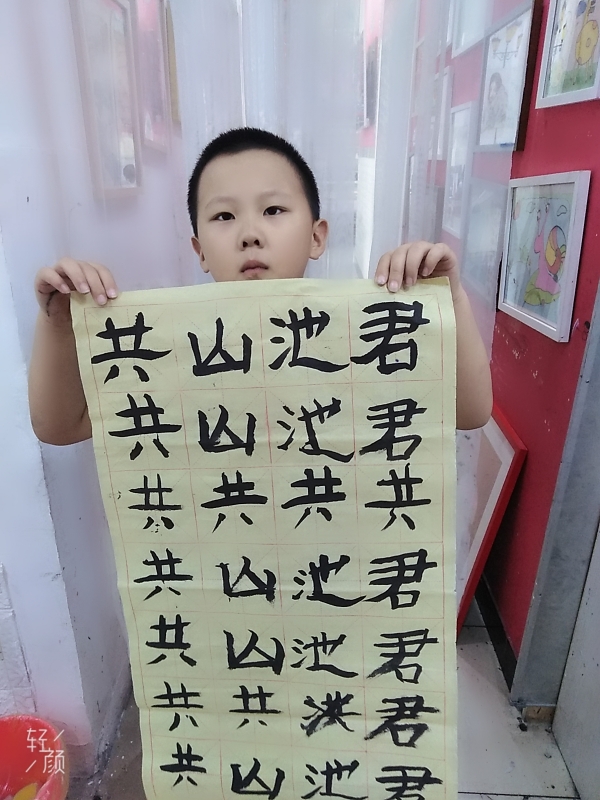 共山池君
共山池君
共共共共
共山池君
共山池君
共共洪君
共山池君
轻
颜